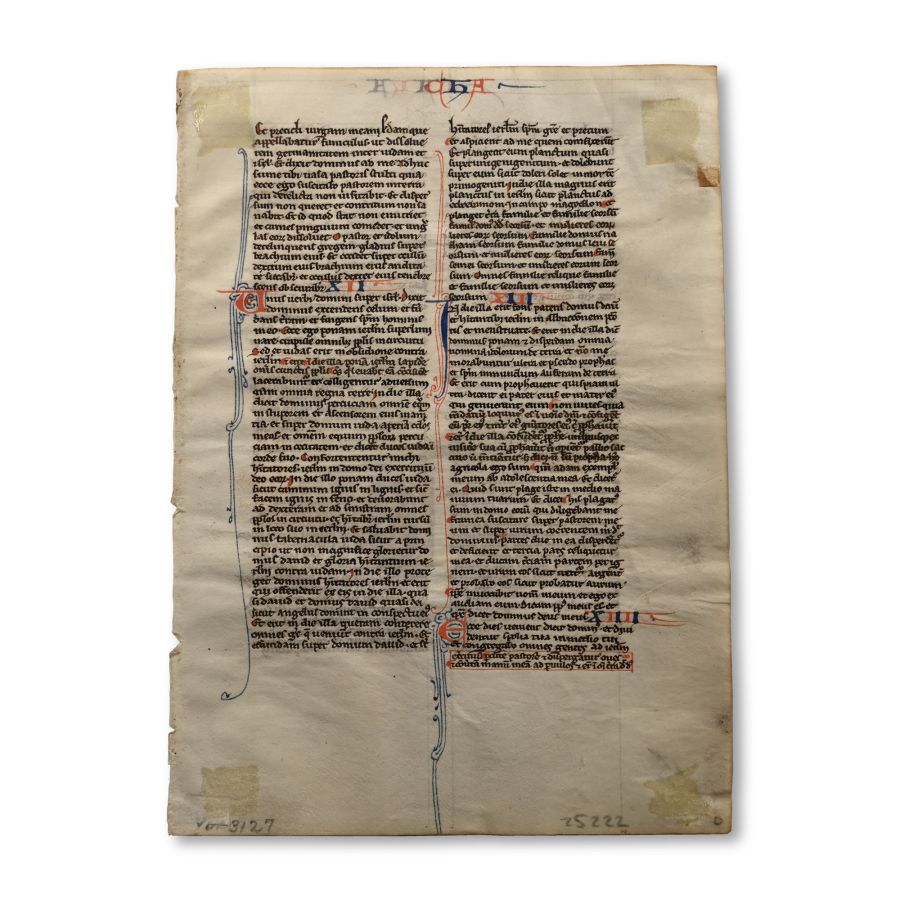 Et precidi virgam meam sedam que
appellabatur funiculus ut dissolue
rem germanitatem inter iudam et
isrl. Et dixit dominus ad me Adhuc
sume tibi uasa pastoris stulti quia
ecce ego suscitabo pastorem in terra
qui derelicta non uisitabit. Et disper
sum non queret et contritum non sa
nabit. Et id quod stat non enutriet
et carnes pinguium comedet et ung
las eorum dissoluet. O pastor et idolum
derelinquens gregem gladius super
brachium eius et super oculum
dextrum eius brachium eius aridita
te siccabitur et oculus dexter eius tenebre
scens obscurabitur XII
Onus uerbi domini super isrl. Dixit
dominus extendens celum et fun
dans terram et fingens spm hominis
in eo. Ecce ego ponam ierlm superlimi
nare crapule omnibus pplis in circuitu
Sed et iudas erit in obsidione contra
ierlm et erit In die illa ponam ierlm lapidem
oneris cunctis pplis
lacerabuntur et colligentur aduersum
eam omnia regna terre In die illa
dicit dominus percutiam omnem equum
in stuporem et ascensorem eius in amen
tia. et super domum iuda aperiam oclos
meos et omnem equum pplorum percu
ciam in cecitate et dicent duces iuda in
corde suo. Confortentur michi
hitatores ierlm in domo dei exercituum
deo eorum in die illo ponam duces iuda
sicut caminum ignis in lignis et sicut
facem ignis in feno. et deuorabunt
ad dexteram et ad sinistram omnes
pplos in circuitu. et hitabitur ierlm rursum
in loco suo in ierlm. Et saluabit domi
nus tabernacula iuda sicut a prin
cipio ut non magnifice glorietur do
mus dauid et gloria hitantium ie
rlm contra iudam. in die illo prote
get dominus hitatores ierlm et erit
qui offenderit ex eis in die illa. qua
si dauid et domus dauid quasi dei
sicut angelus domini in conspectu eius
Et erit in die illa queram conterere
omnes gentes que ueniunt contra ierlm. Et
effundam super domum dauid et super
hitatores ierlm spm gre et precum
et aspicient ad me quem confixerunt
Et plangent eum planctum quasi
super unigenitum et dolebunt
super eum sicut doleri solet in morte
primogeniti in die illa magnus erit
planctus in ierlm sicut planctus ad
adremmon in campo magedon et
planget terra familie et familie seorsum
familie domus dd seorsum et mulieres eorum
familie domus na
than seorsum familie domus leui se
orsum et mulieres eorum seorsum
semei seorsum et mulieres eorum seor
sum Omnes familie relique familie
et familie seorsum et mulieres eorum
seorsum XIII
In die illa erit fons patens domui dauid
et hitantibus ierlm in ablucionem peccato
ris et menstruate. Et erit in die illa dicit
dominus disperdam omnia
nomina idolorum de terra et non me
morabuntur ultra et pseudo prophetas
et spm inmundum auferam de terra
Et erit cum prophetauerit quispiam ul
tra dicent ei pater eius et mater eius
qui genuerunt eum Non uiues quia
mendacium locutus es in nomine domini et configent
eum pater eius et mater eius genitores eius cum prophetauerit
et erit In die illa confundentur prophete unusquisque
uisione sua cum prophetauerit nec operientur pallio sac
cino ut mentiantur sed dicet non sum propheta homo
agricola ego sum Quoniam adam exemplum
meum ab adolescentia mea Et dicetur
ei Quid sunt plage iste in medio ma
nuum tuarum Et dicet his plagatus
sum in domo eorum qui diligebant me
framea suscitare super pastorem me
um et super uirum coherentem michi dicit
dominus partes due in ea dispergentur
et deficient et tercia pars relinquetur
in ea et ducam terciam partem per ig
nem et uram eos sicut uritur argentum
et probabo eos sicut probatur aurum
ipse inuocabit nomen meum et ego ex
audiam eum Dicam pplus meus es et
ipse dicet dominus deus meus XIIII
Ecce dies uenient dicit dominus et diui
dentur spolia tua in medio tui
et congregabo omnes gentes ad ierlm
exercituum percute pastorem et dispergantur oues
et conuertam manum meam ad paruulos et erunt in omni terra dicit dominus
3127
25222